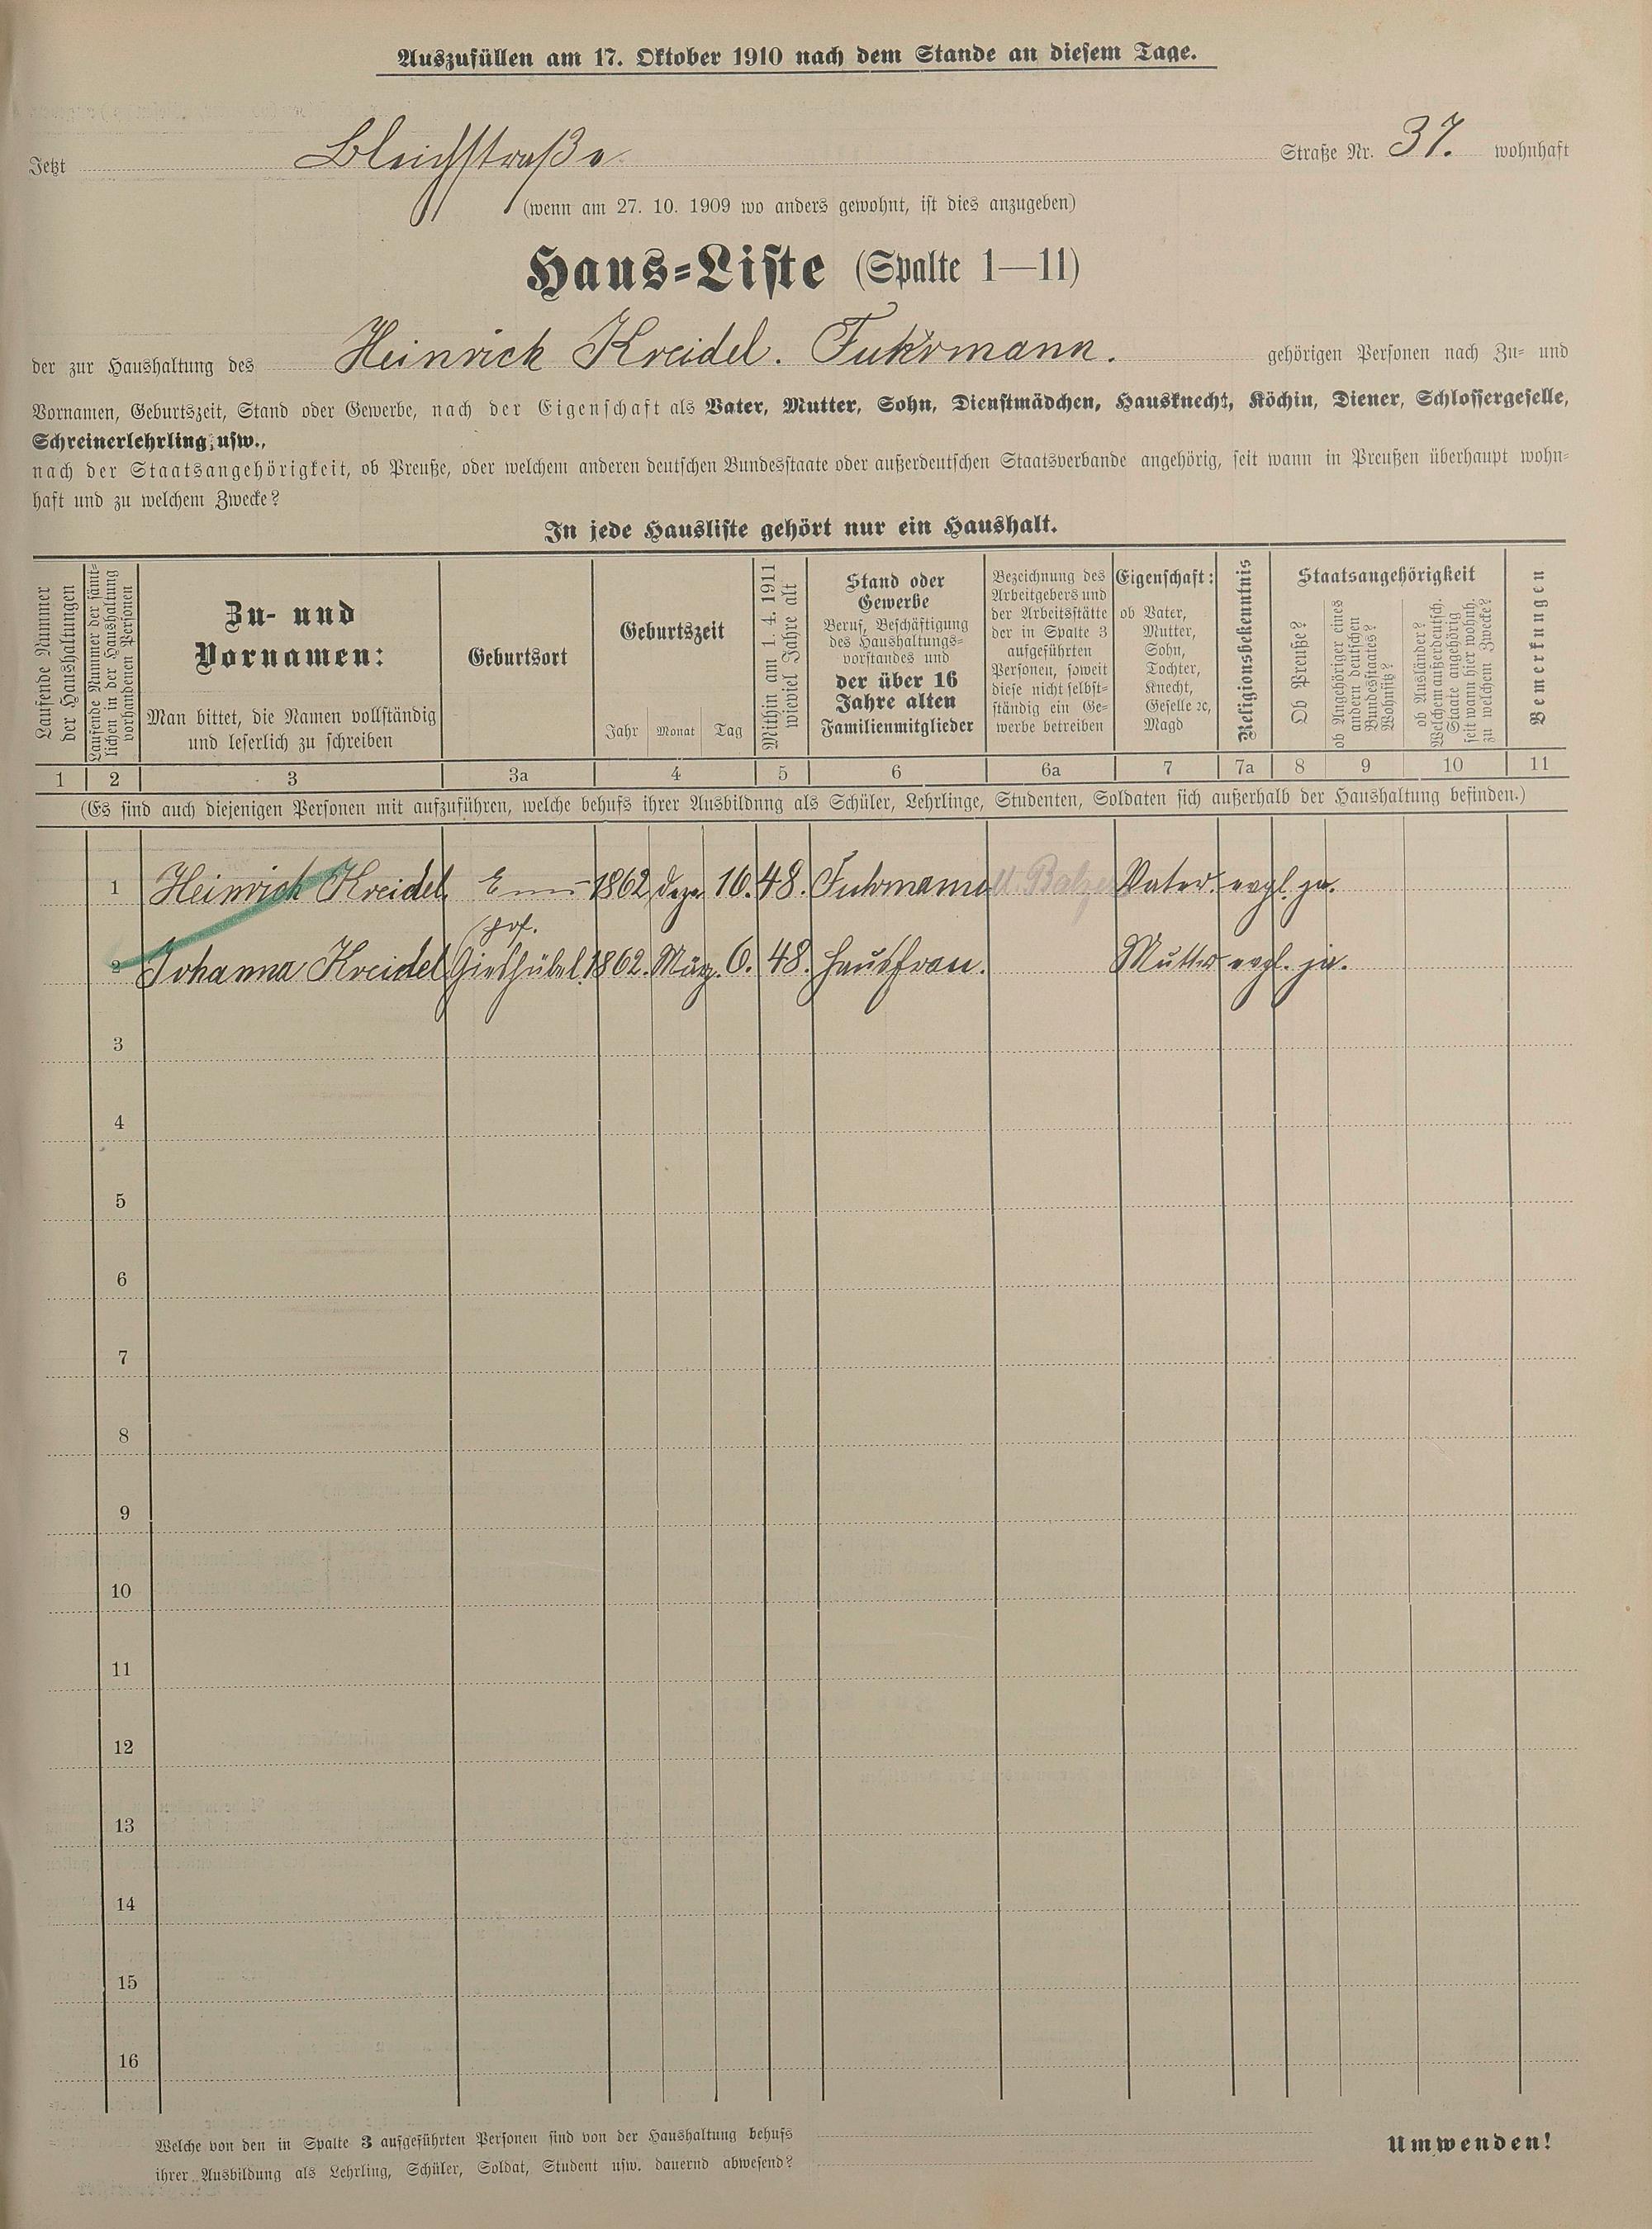 Auszufüllen am 17. Oktober 1910 nach dem Stande an diesem Tage.
Jetzt Bleichstraße Straße Nr. 37. wohnhaft
(wenn am 27. 10. 1909 wo anders gewohnt, ist dies anzugeben)
Haus-Liste (Spalte 1—11)
der zur Haushaltung des Heinrich Kreidel. Fuhrmann. gehörigen Personen nach Zu- und
Vornamen, Geburtszeit, Stand oder Gewerbe, nach der Eigenschaft als Vater, Mutter, Sohn, Dienstmädchen, Hausknecht, Köchin, Diener, Schlossergeselle,
Schreinerlehrling, usw.,
nach der Staatsangehörigkeit, ob Preuße, oder welchem anderen deutschen Bundesstaate oder außerdeutschen Staatsverbande angehörig, seit wann in Preußen überhaupt wohn-
haft und zu welchem Zwecke?
In jede Hausliste gehört nur ein Haushalt.
Laufende Nummer
der Haushaltungen
Laufende Nummer der sämt-
lichen in der Haushaltung
vorhandenen Personen
Zu- und
Vornamen:
Man bittet, die Namen vollständig
und leserlich zu schreiben
Geburtsort
Geburtszeit
Jahr Monat Tag
Mithin am 1. 4. 1911
wieviel Jahre alt
Stand oder
Gewerbe
Beruf, Beschäftigung
des Haushaltungs-
vorstandes und
der über 16
Jahre alten
Familienmitglieder
Bezeichnung des
Arbeitgebers und
der Arbeitsstätte
der in Spalte 3
aufgeführten
Personen, soweit
diese nicht selbst-
ständig ein Ge-
werbe betreiben
Eigenschaft:
ob Vater,
Mutter,
Sohn,
Tochter,
Knecht,
Geselle ꝛc,
Magd
Religionsbekenntnis
Staatsangehörigkeit
Ob Preuße?
ob Angehöriger eines
andern deutschen
Bundesstaates?
Wohnsitz?
ob Ausländer?
Welchem außerdeutsch.
Staate angehörig
seit wann hier wohnh.
zu welchem Zwecke?
Bemerkungen
1 2 3 3a 4 5 6 6a 7 7a 8 9 10 11
(Es sind auch diejenigen Personen mit aufzuführen, welche behufs ihrer Ausbildung als Schüler, Lehrlinge, Studenten, Soldaten sich außerhalb der Haushaltung befinden.)
1 Heinrich Kreidel. 1862 Dezn 16. 48. Fuhrmann Balzer Vater. evgl. ja.
2 Johanna Kreidel 1862. März. 6. 48. Hausfrau. Mutter evgl. ja.
3
4
5
6
7
8
9
10
11
12
13
14
15
16
Welche von den in Spalte 3 aufgeführten Personen sind von der Haushaltung behufs
ihrer Ausbildung als Lehrling, Schüler, Soldat, Student usw. dauernd abwesend?
Umwenden!